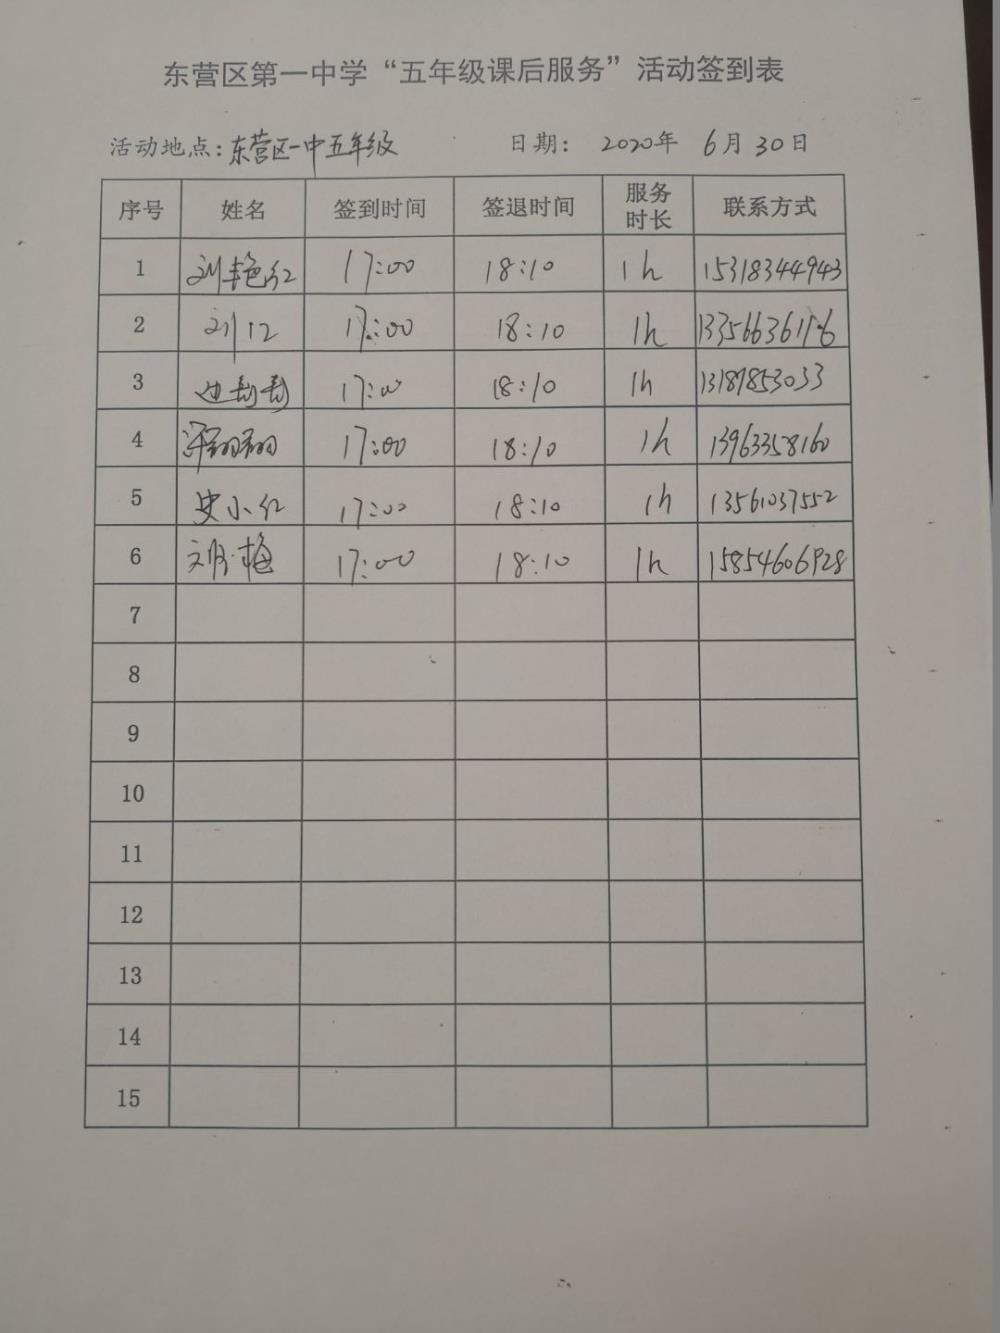 东营区第一中学“五年级课后服务”活动签到表
活动地点:东营区一中五年级 日期: 2020年 6月30日
序号 姓名 签到时间 签退时间 服务时长 联系方式
1 刘艳红 17:00 18:10 1h 15318344943
2 刘江 17:00 18:10 1h
3 17:00 18:10 1h 13187853033
4 翱翱 17:00 18:10 1h 13963358160
5 史小红 17:00 18:10 1h 13561037552
6 梅 17:00 18:10 1h 15854606928
7
8
9
10
11
12
13
14
15